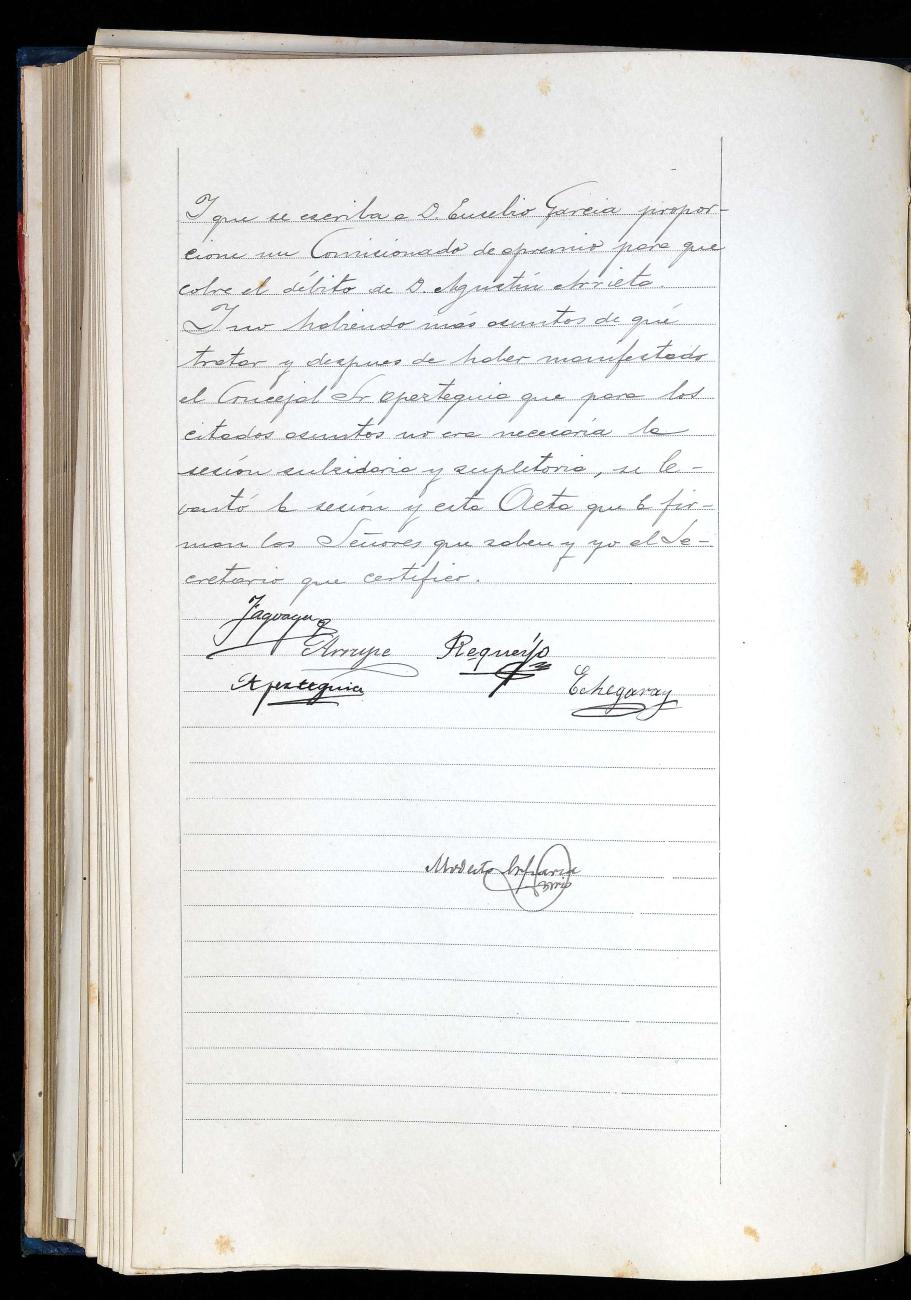 Y que se escriba a D. Euselio Garcia propor-
cione un Comisionado de apremio para que
cobre el débito de D. Agustín Arrieta.
Y no habiendo más asuntos de qué
tratar y despues de haber manifestado
el Concejal Sr Apezteguia que para los
citados asuntos no era necesaria la
sesión subsidaria y supletoria, se le-
vantó la sesión y esta Acta que la fir-
man los Señores que saben y yo el Se-
cretario que certifico.
Arrupe Requeijo
Apezteguia Echegaray
Modesto